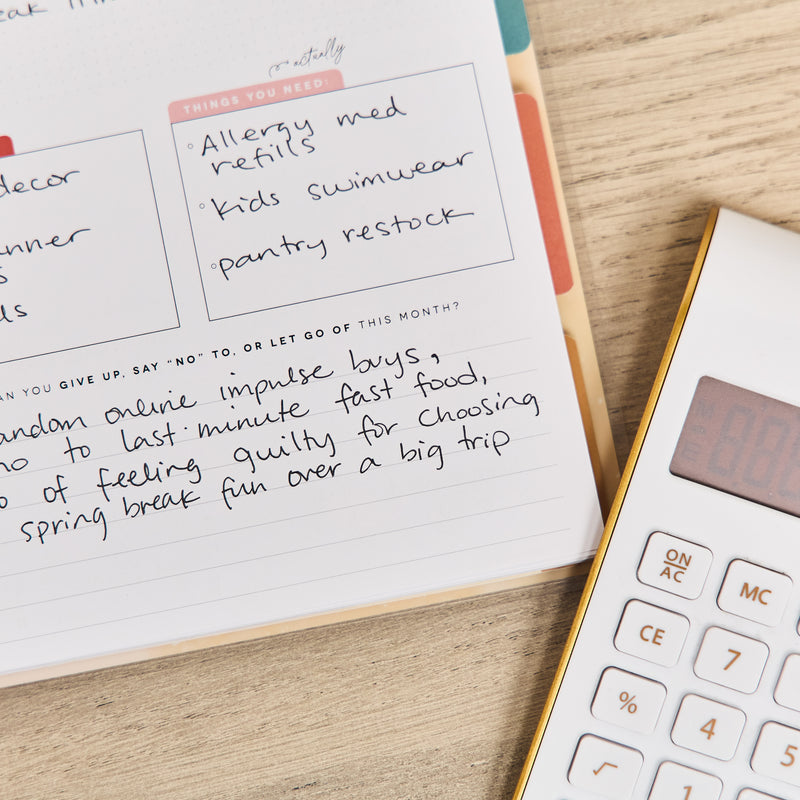 actually
THINGS YOU NEED:
Allergy med
refills
kids swimwear
pantry restock
decor
YOU GIVE UP, SAY "NO" TO, OR LET GO OF THIS MONTH?
online impulse buys,
to last-minute fast food,
of feeling guilty for choosing
spring break fun over a big trip
ON
AC
MC
CE
7
%
4
5
√
1